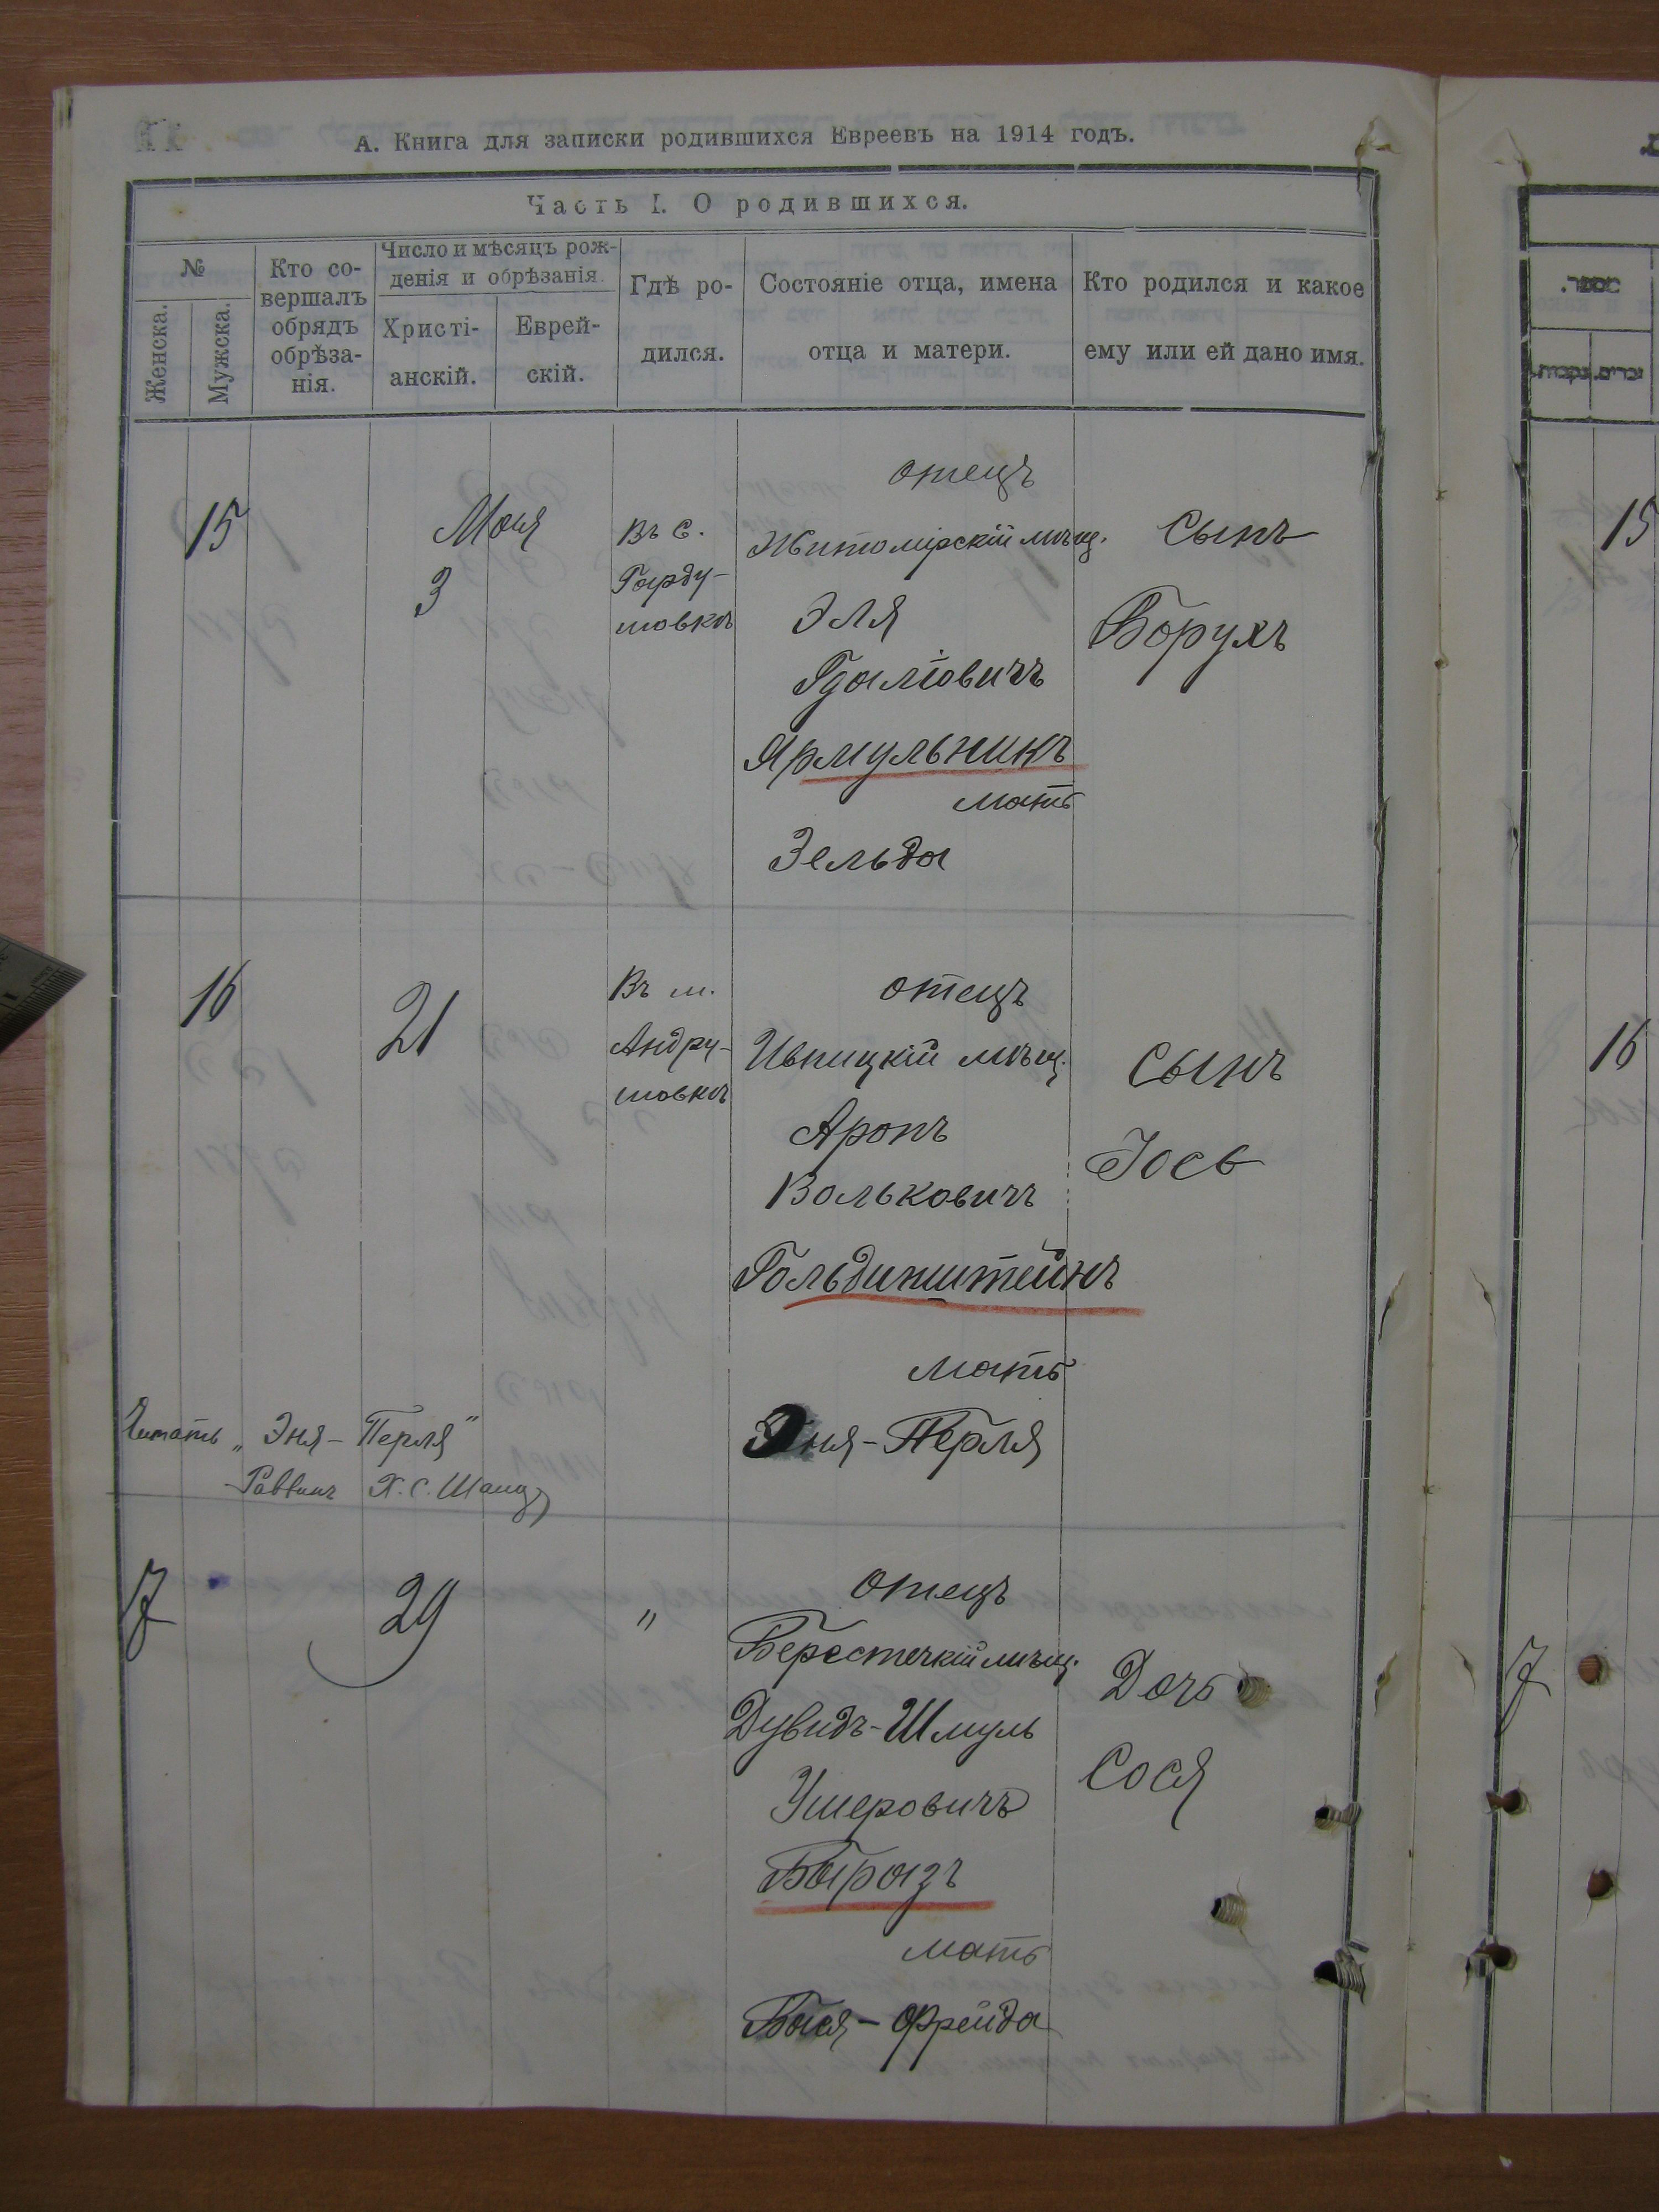 А. Книга для записки родившихся Евреевъ на 1914 годъ.
Часть I. О родившихся.
№
Женска.
Мужска.
Кто со-
вершалъ
обрядъ
обрѣза-
нія.
Число и мѣсяцъ рож-
денія и обрѣзанія.
Христі-
анскій.
Еврей-
скій.
Гдѣ ро-
дился.
Состояніе отца, имена
отца и матери.
Кто родился и какое
ему или ей дано имя.
15
Мая
3
Въ с.
отецъ
Житомірскій мѣщ.
Эля
Гдаліовичъ
Ярмульникъ
мать
Зельда
Сынъ
Борухъ
16
21
Въ м.
Андру-
шовка
отецъ
Ивницкій мѣщ.
Аронъ
Вольковичъ
Гольдинштейнъ
мать
Эня-Перля
Сынъ
Іось
Читать „Эня-Перля"
Раввинъ Х. С.
7
29
"
отецъ
Берестечкій мѣщ.
Дувидъ-Шмуль
Ушеровичъ
Баразъ
мать
Бася-Фрейда
Дочь
Сося
15
16
7